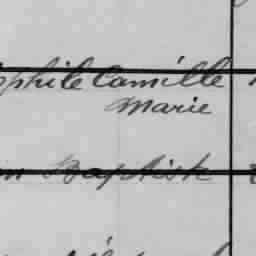 ophile Camille
Marie
Baptiste